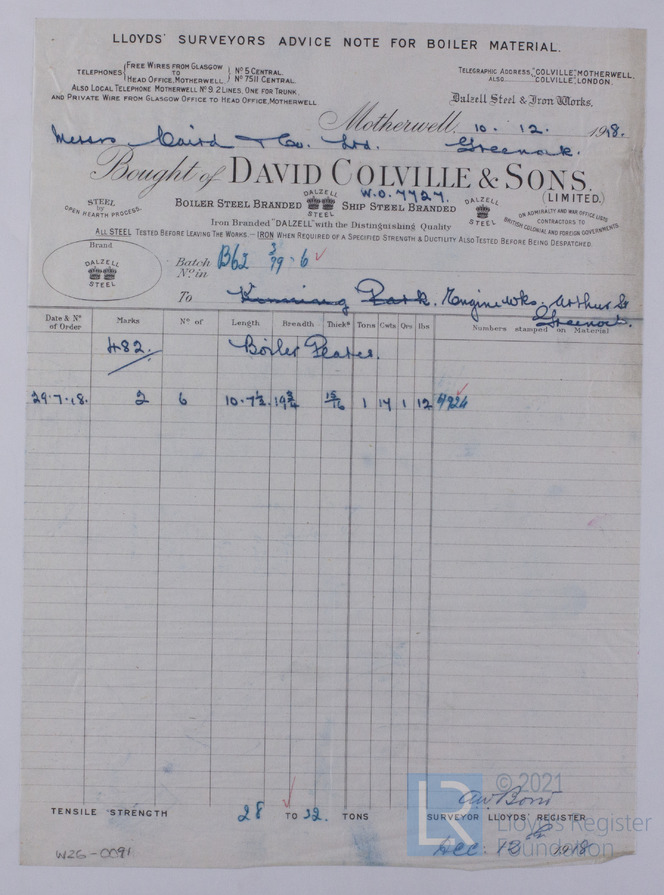 LLOYDS' SURVEYORS ADVICE NOTE FOR BOILER MATERIAL.
TELEPHONES { FREE WIRES FROM GLASGOW TO HEAD OFFICE, MOTHERWELL. } Nº 5 CENTRAL. Nº 7511 CENTRAL.
ALSO LOCAL TELEPHONE MOTHERWELL Nº 9. 2 LINES, ONE FOR TRUNK,
AND PRIVATE WIRE FROM GLASGOW OFFICE TO HEAD OFFICE, MOTHERWELL
TELEGRAPHIC ADDRESS, "COLVILLE", MOTHERWELL,
ALSO "COLVILLE", LONDON.
Dalzell Steel & Iron Works.
Motherwell, 10. 12. 1918.
Messrs Caird & Co. Ltd. Greenock.
Bought of DAVID COLVILLE & SONS.
(LIMITED.)
W.O. 7727.
STEEL by OPEN HEARTH PROCESS.
BOILER STEEL BRANDED DALZELL STEEL SHIP STEEL BRANDED DALZELL STEEL
ON ADMIRALTY AND WAR OFFICE LISTS
CONTRACTORS TO
BRITISH COLONIAL AND FOREIGN GOVERNMENTS.
Iron Branded "DALZELL" with the Distinguishing Quality
ALL STEEL TESTED BEFORE LEAVING THE WORKS. — IRON WHEN REQUIRED OF A SPECIFIED STRENGTH & DUCTILITY ALSO TESTED BEFORE BEING DESPATCHED.
Brand
DALZELL STEEL
Batch Nº in B62 3/79.6
To Kinning Park. Engine Wks. Arthur St
Greenock.
Date & Nº of Order Marks Nº of Length Breadth Thickˢ Tons Cwts Qrs lbs Numbers stamped on Material
482. Boiler Plates.
29.7.18. 2 6 10.7½ 19¾ 15/16 1 14 1 12 4924
TENSILE STRENGTH 28 TO 32. TONS
A.W. Bond
SURVEYOR LLOYDS' REGISTER
Dec: 12th 1918
W26-0091
LR © 2021
Lloyds Register
Foundation